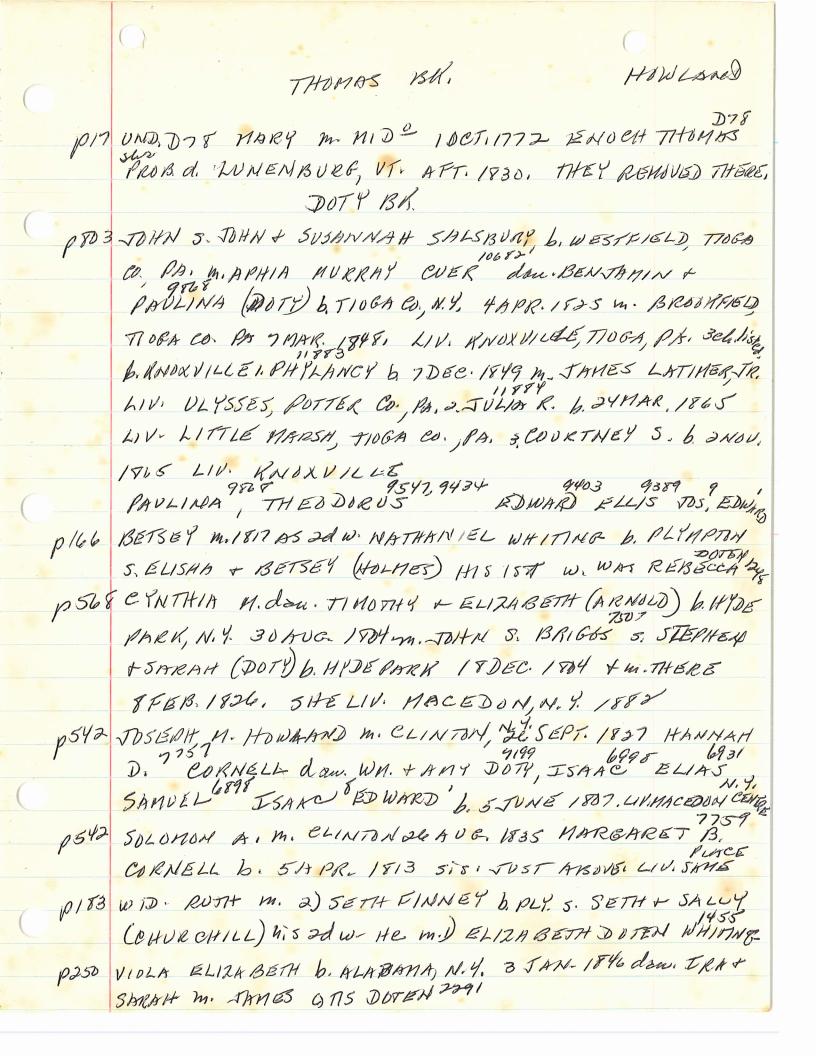 THOMAS BK. HOWLAND
D78
p17 UND. D78 MARY m. MID° 1 OCT. 1772 ENOCH THOMAS
she
PROB. d. LUNENBURG, VT. AFT. 1830. THEY REMOVED THERE.
DOTY BK.
p803 JOHN S. JOHN & SUSANNAH SALSBURY b. WESTFIELD, TIOGA
10682
CO, PA. m. APHIA MURRAY CUER dau. BENJAMIN &
9868
PAULINA (DOTY) b. TIOGA CO, N.Y. 4 APR. 1825 m. BROOKFIELD,
TIOGA CO. PA 7 MAR. 1848. LIV. KNOXVILLE, TIOGA, PA. 3 ch. listed,
11883
b. KNOXVILLE 1. PHYLANCY b 7 DEC. 1849 m. JAMES LATIMER, JR.
11884
LIV. ULYSSES, POTTER CO., PA. 2. JULIA R. b. 24 MAR. 1865
LIV. LITTLE MARSH, TIOGA CO., PA. 3. COURTNEY S. b 2 NOV.
1865 LIV. KNOXVILLE
9868 9547, 9434 9403 9389 9 1
PAULINA, THEODORUS EDWARD ELLIS JOS, EDWARD
p166 BETSEY m. 1817 AS 2d w. NATHANIEL WHITING b. PLYMPTON
DOTEN
S. ELISHA & BETSEY (HOLMES) HIS 1ST w. WAS REBECCA
p568 CYNTHIA M. dau. TIMOTHY & ELIZABETH (ARNOLD) b. HYDE
7307
PARK, N.Y. 30 AUG. 1804 m. JOHN S. BRIGGS S. STEPHEN
& SARAH (DOTY) b. HYDE PARK 18 DEC. 1804 & m. THERE
8 FEB. 1826. SHE LIV. MACEDON, N.Y. 1882
N.Y.
p542 JOSEPH M. HOWAAND m. CLINTON, 26 SEPT. 1827 HANNAH
7757 7199 6998 6931
D. CORNELL dau. WM. & AMY DOTY, ISAAC ELIAS
6898 8 1 N.Y.
SAMUEL ISAAC EDWARD b. 5 JUNE 1807. LIV. MACEDON CENTRE
7759
p542 SOLOMON A. m. CLINTON 26 AUG. 1835 MARGARET B.
PLACE
CORNELL b. 5 APR. 1813 sis. JUST ABOVE. LIV. SAME
p183 WID. RUTH m. 2) SETH FINNEY b. PLY. S. SETH & SALLY
1455
(CHURCHILL) his 2d w- He m. 1) ELIZABETH DOTEN WHITING
p250 VIOLA ELIZABETH b. ALABAMA, N.Y. 3 JAN. 1846 dau. IRA &
SARAH m. JAMES OTIS DOTEN 2291